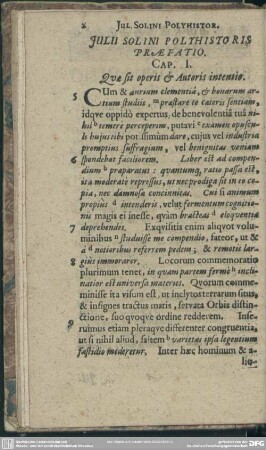 2 JUL. SOLINI POLYHISTOR.
JULII SOLINI POLYHISTORIS
PRÆFATIO.
CAP. I.
Quæ sit operis & Autoris intentio.
5 CUm & aurium clementiâ, & bonarum ar-
tium studiis, præstare te cæteris sentiam,
idqve oppidò expertus, de benevolentiâ tuâ ni-
hil temerè perceperim, putavi examen opuscu-
li hujus tibi potissimùm dare, cujus vel industria
promptius suffragium, vel benignitas veniam
6 spondebat faciliorem. Liber est ad compen-
dium præparatus: quantumq; ratio passa est,
ita moderatè repressus, ut nec prodiga sit in eo co-
pia, nec damnosa concinnitas. Cui si animum
propius intenderis, velut fermentum cogniti-
onis magis ei inesse, quàm bracteas eloquentiæ
7 deprehendes. Exqvisitis enim aliqvot volu-
minibus studuisse me compendio, fateor, ut &
à notioribus referrem pedem, & remotis lar-
8 gius immorarer. Locorum commemoratio
plurimum tenet, in quam partem fermè incli-
natior est universa materies. Quorum comme-
minisse ita visum est, ut inclytos terrarum situs,
& insignes tractus maris, servata Orbis distin-
ctione, suo qvoqve ordine redderem. Inse-
9 ruimus etiam pleraqve differenter congruentia,
ut si nihil aliud, saltem varietas ipsa legentium
fastidio mederetur. Inter hæc hominum & a-
lio-